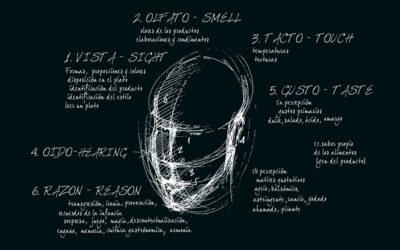 2. OLFATO - SMELL
olores de los productos
elaboraciones y condimentos
3. TACTO - TOUCH
temperaturas
texturas
1. VISTA - SIGHT
Formas, proporciones y colores
disposición en el plato
identificación del producto
identificación del estilo
leer un plato
5. GUSTO - TASTE
5a. percepción
gustos primarios
dulce, salado, ácido, amargo
6
1
2
3
4
5
4. OIDO-HEARING
5c. sabor propio
de los alimentos
(gen del producto)
5b. percepción
matices gustativos
agrio, balsámico,
astringente, rancio, yodado
ahumado, picante
6. RAZON - REASON
transgresión, ironía, provocación,
recuerdos de la infancia
sorpresa, juego, magia, descontextualización,
engaño, memoria, cultura gastronómica, armonía